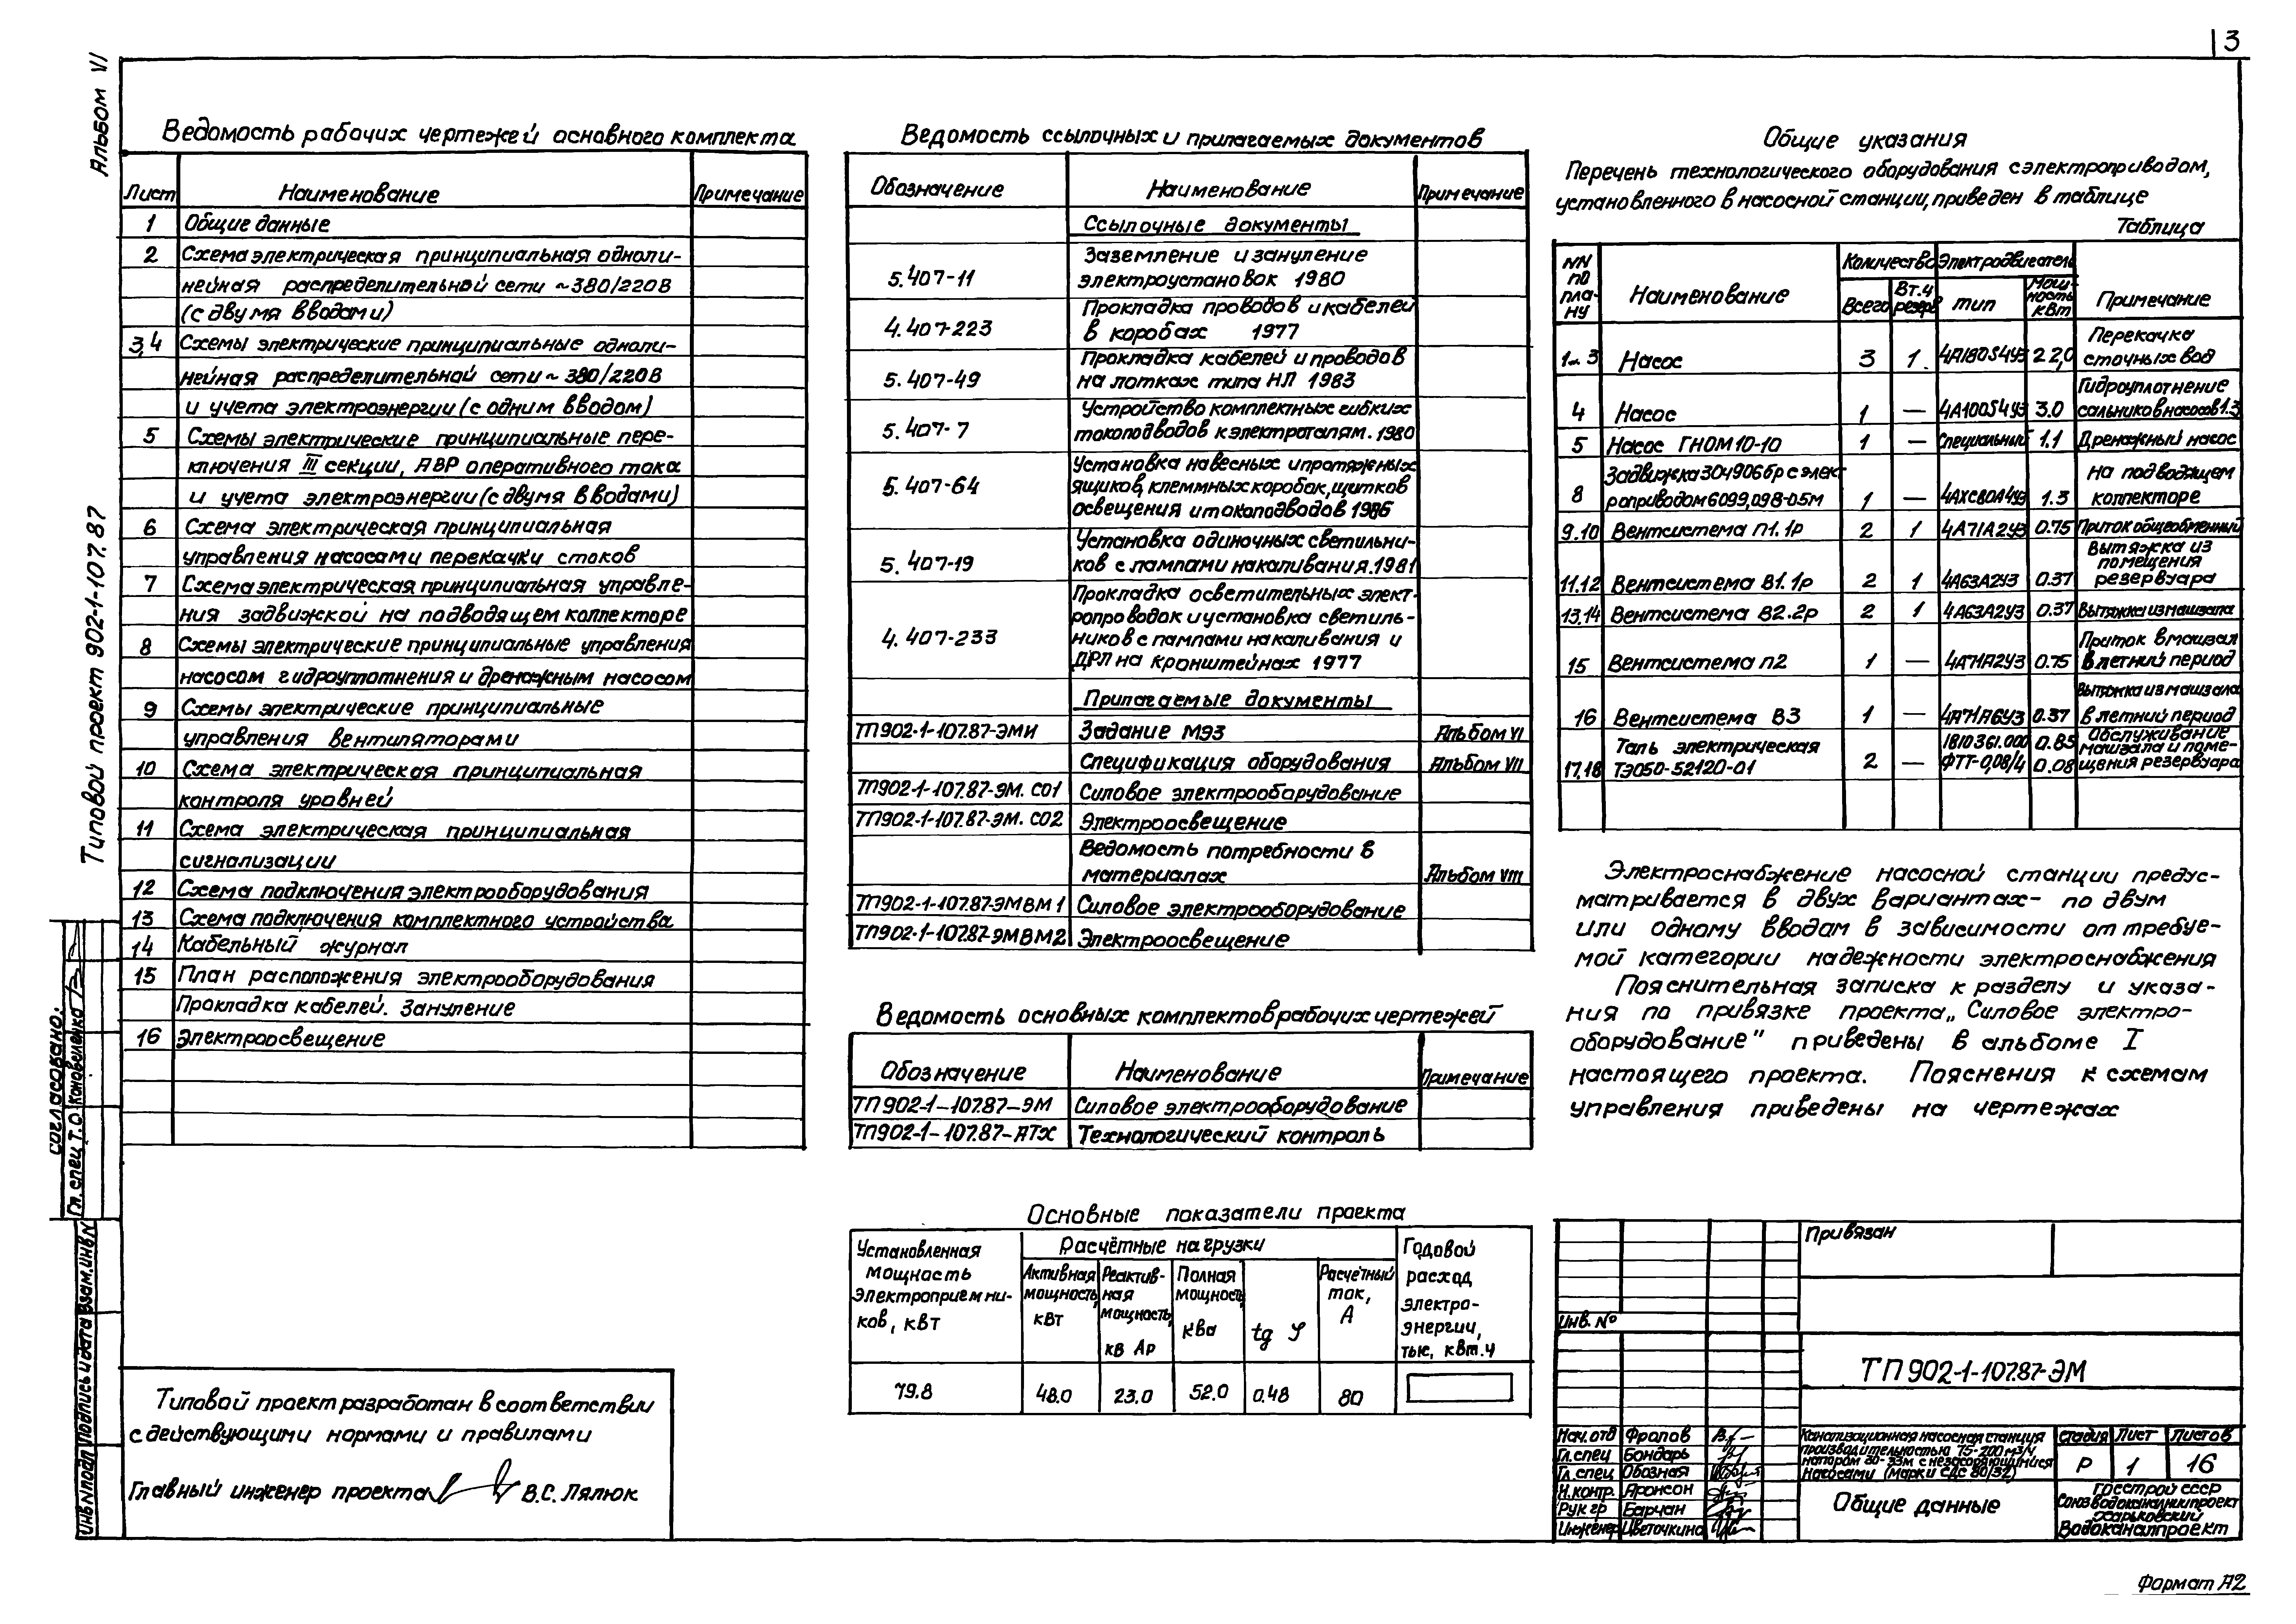 3
Альбом VI
Типовой проект 902-1-107.87
Ведомость рабочих чертежей основного комплекта
Лист Наименование Примечание
1 Общие данные
2 Схема электрическая принципиальная одноли-
нейная распределительной сети ~380/220В
(с двумя вводами)
3,4 Схемы электрические принципиальные одноли-
нейная распределительной сети ~ 380/220В
и учета электроэнергии (с одним вводом)
5 Схемы электрические принципиальные пере-
ключения III секции, АВР оперативного тока
и учета электроэнергии (с двумя вводами)
6 Схема электрическая принципиальная
управления насосами перекачки стоков
7 Схема электрическая принципиальная управле-
ния задвижкой на подводящем коллекторе
8 Схемы электрические принципиальные управления
насосом гидроуплотнения и дренажным насосом
9 Схемы электрические принципиальные
управления вентиляторами
10 Схема электрическая принципиальная
контроля уровней
11 Схема электрическая принципиальная
сигнализации
12 Схема подключения электрооборудования
13 Схема подключения комплектного устройства
14 Кабельный журнал
15 План расположения электрооборудования
Прокладка кабелей. Зануление
16 Электроосвещение
Согласовано:
Гл. спец. Т.О. Кановеленко
Инв.N подл Подпись и дата Взам.инв.N
Типовой проект разработан в соответствии
с действующими нормами и правилами
Главный инженер проекта В.С. Лялюк
Ведомость ссылочных и прилагаемых документов
Обозначение Наименование Примечание
Ссылочные документы
5.407-11 Заземление и зануление
электроустановок 1980
4.407-223 Прокладка проводов и кабелей
в коробах 1977
5.407-49 Прокладка кабелей и проводов
на лотках типа НЛ 1983
5.407-7 Устройство комплектных гибких
токоподводов к электроталям. 1980
5.407-64 Установка навесных и протяжных
ящиков, клеммных коробок, щитков
освещения и токоподводов 1986
5.407-19 Установка одиночных светильни-
ков с лампами накаливания. 1981
4.407-233 Прокладка осветительных элект-
ропроводок и установка светиль-
ников с лампами накаливания и
ДРЛ на кронштейнах 1977
Прилагаемые документы
ТП902-1-107.87-ЭМИ Задание МЭЗ Альбом VI
Спецификация оборудования Альбом VII
ТП902-1-107.87-ЭМ. СО1 Силовое электрооборудование
ТП902-1-107.87-ЭМ. СО2 Электроосвещение
Ведомость потребности в
материалах Альбом VIII
ТП902-1-107.87-ЭМВМ1 Силовое электрооборудование
ТП902-1-107.87-ЭМВМ2 Электроосвещение
Ведомость основных комплектов рабочих чертежей
Обозначение Наименование Примечание
ТП902-1-107.87-ЭМ Силовое электрооборудование
ТП902-1-107.87-АТХ Технологический контроль
Основные показатели проекта
Установленная мощность электроприемни-ков, квт
Расчётные нагрузки
Активная мощность, квт
Реактив-ная мощность, кв Ар
Полная мощность, ква
tg φ
Расчётный ток, А
Годовой расход электро-энергии, тыс, квт.ч
79.8 48.0 23.0 52.0 0.48 80
Общие указания
Перечень технологического оборудования с электроприводом,
установленного в насосной станции, приведен в таблице
Таблица
NN по пла-ну Наименование Количество Электродвигатель Примечание
Всего Вт.ч резерв тип Мощ-ность квт
1...3 Насос 3 1. 4А180S4У3 22,0 Перекачка сточных вод
4 Насос 1 — 4А100S4У3 3.0 Гидроуплотнение сальников насосов 1.3
5 Насос ГНОМ 10-10 1 — Специальный 1.1 Дренажный насос
8 Задвижка 30ч906бр с элект-роприводом 6099,098-05м 1 — 4АХС80А4У3 1.3 На подводящем коллекторе
9.10 Вентсистема П1.1р 2 1 4А71А2У3 0.75 Приток общеобменный
11.12 Вентсистема В1.1р 2 1 4А63А2У3 0.37 Вытяжка из помещения резервуара
13.14 Вентсистема В2.2р 2 1 4А63А2У3 0.37 Вытяжка из машзала
15 Вентсистема П2 1 — 4А71А2У3 0.75 Приток в машзал в летний период
16 Вентсистема В3 1 — 4А71А6У3 0.37 Вытяжка из машзала в летний период
17.18 Таль электрическая ТЭ050-52120-01 2 — 1810361.000 0.85 ФТТ-0,08/4 0.08 Обслуживание машзала и поме-щения резервуара
Электроснабжение насосной станции предус-
матривается в двух вариантах - по двум
или одному вводам в зависимости от требуе-
мой категории надежности электроснабжения
Пояснительная записка к разделу и указа-
ния по привязке проекта „Силовое электро-
оборудование" приведены в альбоме I
настоящего проекта. Пояснения к схемам
управления приведены на чертежах
Привязан
Инв. №
ТП 902-1-107.87-ЭМ
Нач. отд Фролов
Гл. спец Бондарь
Гл. спец Обозная
Н.контр. Аронсон
Рук гр Барчан
Инженер Цветочкина
Канализационная насосная станция
производительностью 75-200 м³/ч
напором 30-33м с незасоряющимися
насосами (марки СДС 80/32)
Стадия Лист Листов
Р 1 16
Общие данные
Госстрой СССР
Союзводоканалниипроект
Харьковский
Водоканалпроект
Формат А2